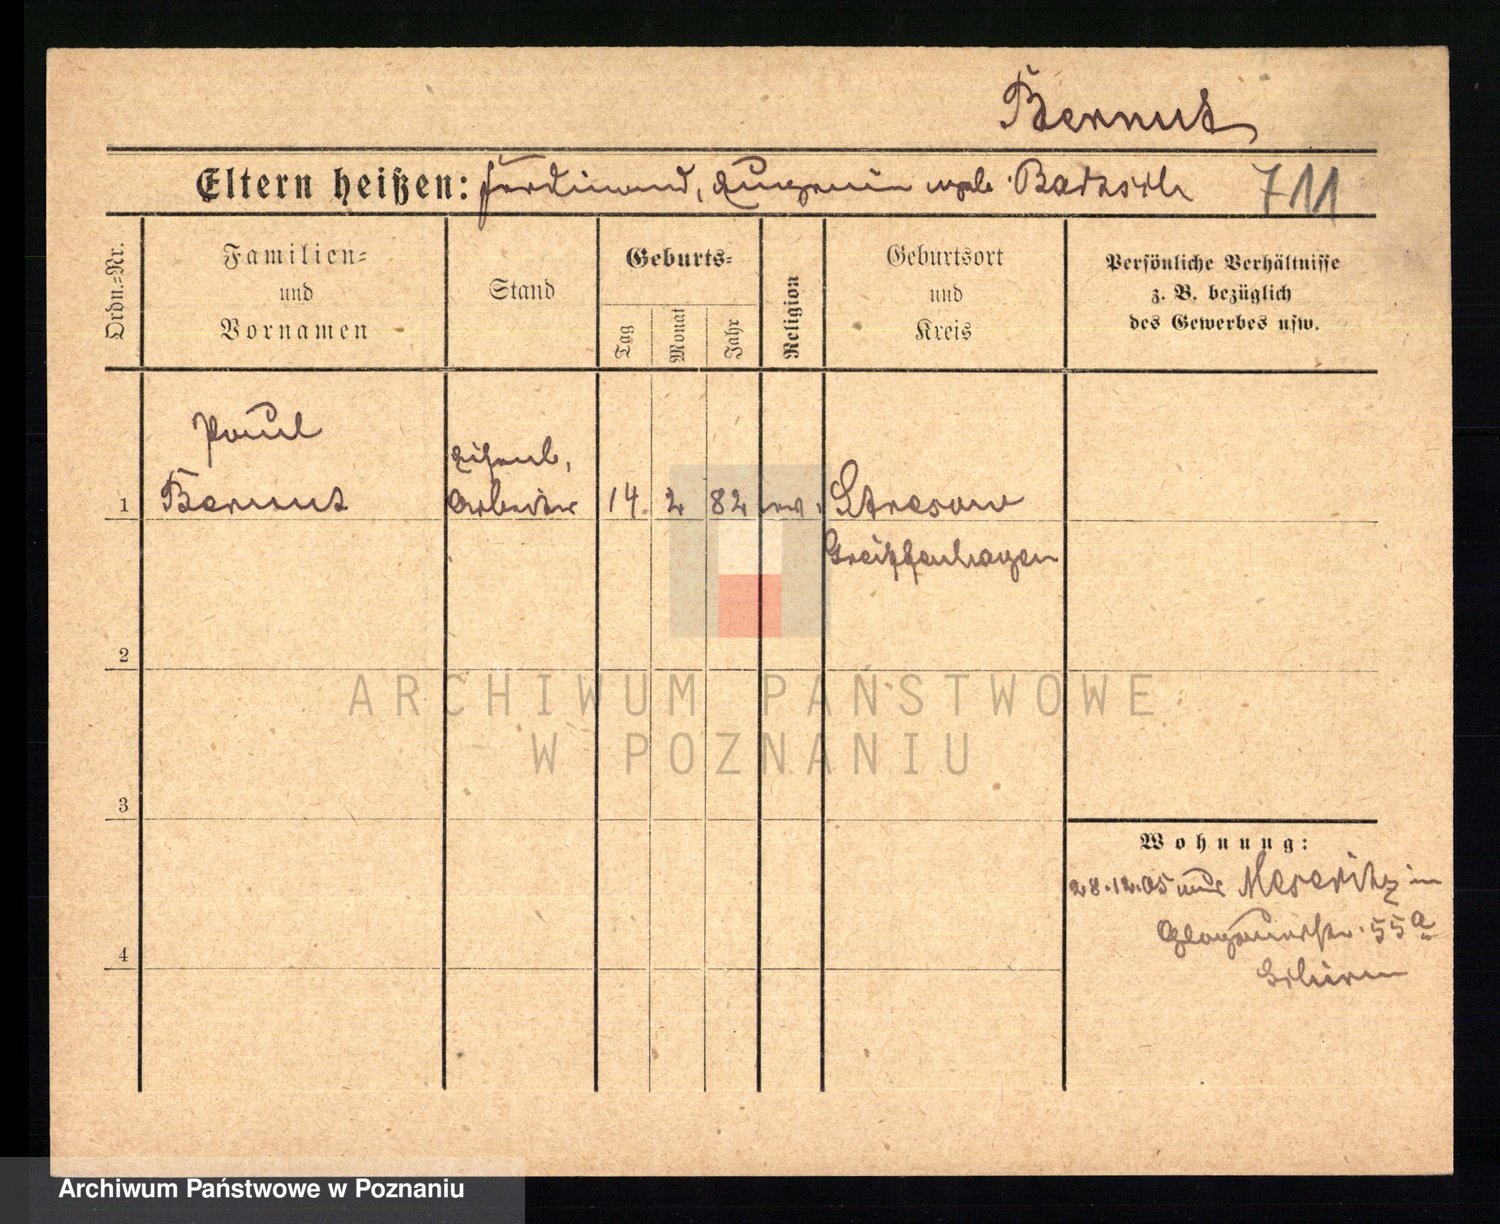 Bernut
Eltern heißen: Ferdinand, Eugenie geb. 711
Ordn.-Nr.
Familien-
und
Vornamen
Stand
Geburts-
Tag
Monat
Jahr
Religion
Geburtsort
und
Kreis
Persönliche Verhältnisse
z. B. bezüglich
des Gewerbes usw.
Paul
Eisenb.
1 Bernut Arbeiter 14. 2 82 ev. Stresow
Greiffenhagen
2
ARCHIWUM PAŃSTWOWE
W POZNANIU
3
Wohnung:
28.12.05 aus Meseritz in
Glogauerstr. 55a
4
Archiwum Państwowe w Poznaniu